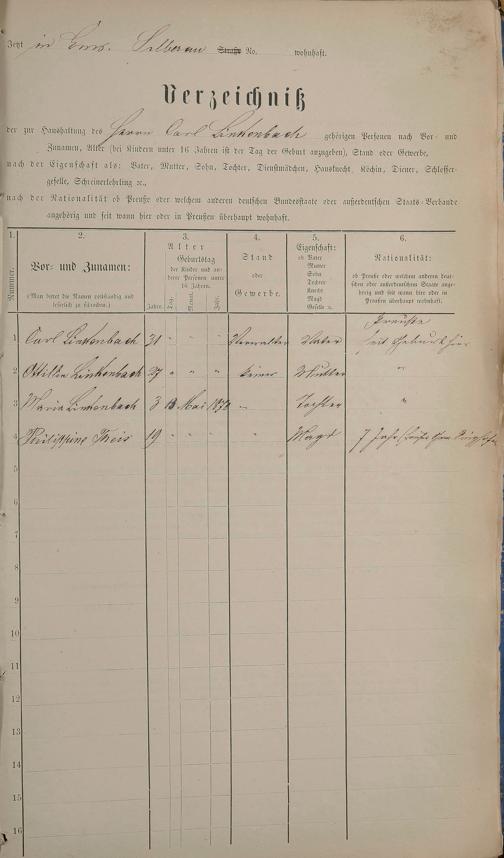 Jetzt in Ems. Silberau Straße No. wohnhaft.
Verzeichniß
der zur Haushaltung des Herrn Carl Linkenbach gehörigen Personen nach Vor- und
Zunamen, Alter (bei Kindern unter 16 Jahren ist der Tag der Geburt anzugeben), Stand oder Gewerbe,
nach der Eigenschaft als: Vater, Mutter, Sohn, Tochter, Dienstmädchen, Hausknecht, Köchin, Diener, Schlosser-
geselle, Schreinerlehrling ꝛc.,
nach der Nationalität ob Preuße oder welchem anderen deutschen Bundesstaate oder außerdeutschen Staats-Verbande
angehörig und seit wann hier oder in Preußen überhaupt wohnhaft.
1. 2. 3. 4. 5. 6.
Nummer.
Vor- und Zunamen:
(Man bittet die Namen vollständig und
leserlich zu schreiben.)
Alter
Geburtstag
der Kinder und an-
derer Personen unter
16 Jahren.
Jahre. Tag. Monat. Jahr.
Stand
oder
Gewerbe.
Eigenschaft:
ob Vater
Mutter
Sohn
Tochter
Knecht
Magd
Geselle ꝛc.
Nationalität:
ob Preuße oder welchem anderen deut-
schen oder außerdeutschen Staate ange-
hörig und seit wann hier oder in
Preußen überhaupt wohnhaft.
Preuße
1 Carl Linkenbach 31 " " " Verwalter Vater seit Geburt hier
2 Ottilie Linkenbach 27 " " " keines Mutter "
3 Maria Linkenbach 3 Mai 1872 " Tochter "
4 Philippine Theis 19 " " " " Magd 7 Jahr
5
6
7
8
9
10
11
12
13
14
15
16